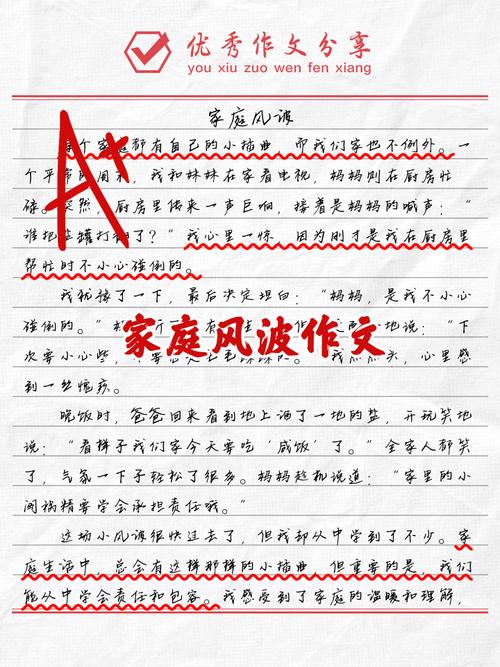 优秀作文分享
you xiu zuo wen fen xiang
家庭风波
A+
个家庭都有自己的小插曲,而我们家也不例外。一
个平常的周末,我和妹妹在客厅看电视,妈妈则在厨房忙
碌。突然,厨房里传来一声巨响,接着是妈妈的喊声:“
谁把盐罐打了?”我心里一惊,因为刚才是我在厨房里
帮忙时不小心碰倒的。
我犹豫了一下,最后决定坦白:“妈妈,是我不小心
碰倒的。”地说:“下
家庭风波作文
次要小心些,头,心里感
到一丝愧疚。
晚饭时,爸爸回来看到地上洒了一地的盐,开玩笑地
说:“看样子我们家今天要吃‘咸饭’了。”全家人都笑
了,气氛一下子轻松了很多。妈妈趁机说道:“家里的小
闯祸精要学会承担责任哦。”
这场小风波很快过去了,但我却从中学到了不少。家
庭生活中,总会有这样那样的小插曲,但重要的是,我们
能从中学会责任和包容。我感受到了家庭的温暖和理解,